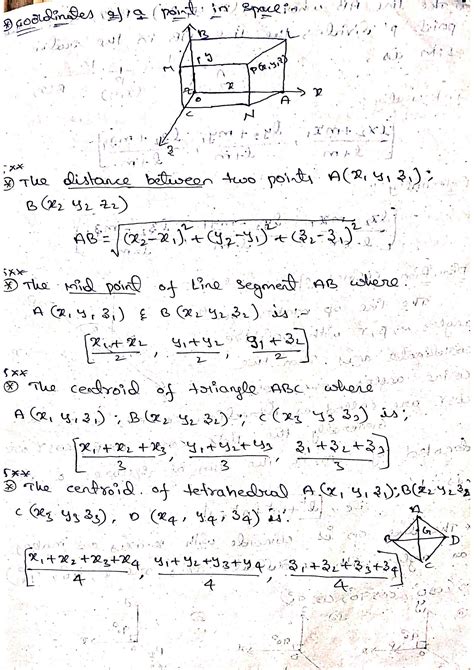 * Coordinates of a point in space:
B
L
M
y
P(x,y,z)
z
x
O
A
x
C
N
z
** The distance between two points A(x₁ y₁ z₁);
B(x₂ y₂ z₂)
AB = √(x₂-x₁)² + (y₂-y₁)² + (z₂-z₁)²
** The Mid point of Line segment AB where
A(x₁ y₁ z₁) & B(x₂ y₂ z₂) is :-
[x₁+x₂/2, y₁+y₂/2, z₁+z₂/2]
5** The cedroid of triangle ABC where
A(x₁ y₁ z₁); B(x₂ y₂ z₂); C(x₃ y₃ z₃) is;
[x₁+x₂+x₃/3, y₁+y₂+y₃/3, z₁+z₂+z₃/3]
5** The centroid of tetrahedral A(x₁ y₁ z₁); B(x₂ y₂ z₂
C(x₃ y₃ z₃), D(x₄, y₄, z₄) is.
A
G
B
D
C
[x₁+x₂+x₃+x₄/4, y₁+y₂+y₃+y₄/4, z₁+z₂+z₃+z₄/4]